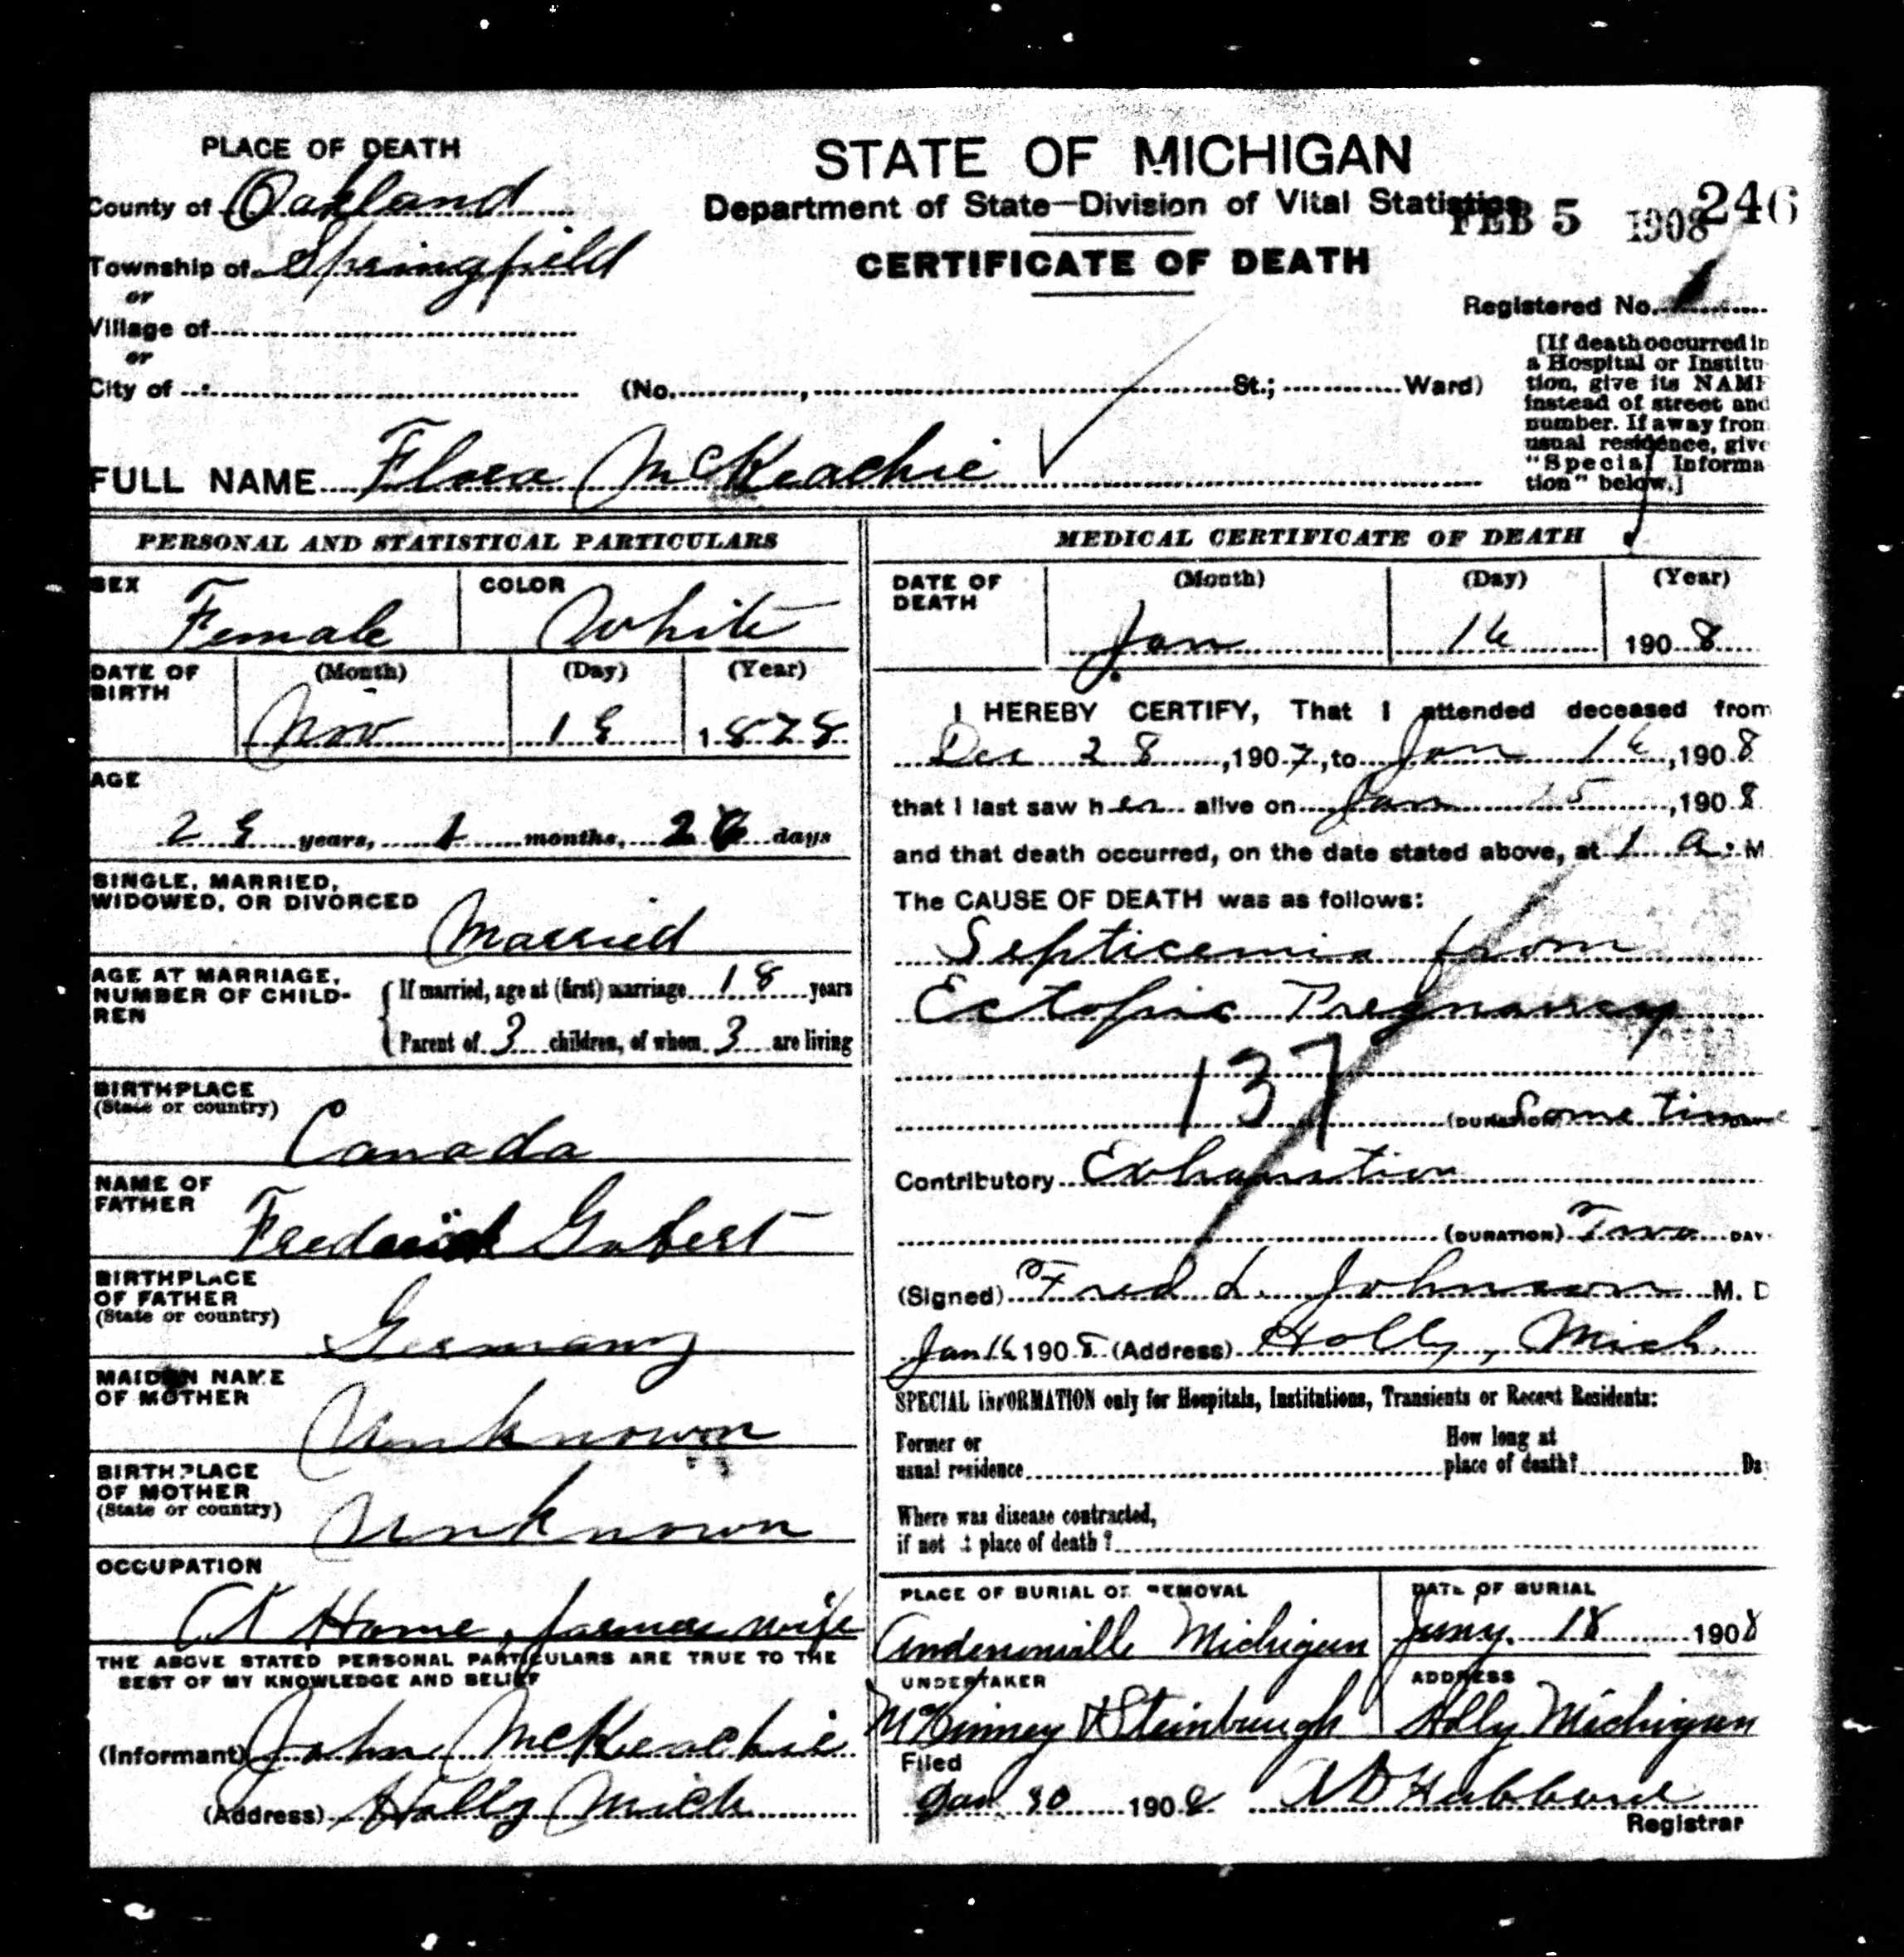 PLACE OF DEATH
County of Oakland
Township of Springfield
or
Village of
or
City of
STATE OF MICHIGAN
Department of State—Division of Vital Statistics
FEB 5 1908 246
CERTIFICATE OF DEATH
Registered No. 1
(No. , St.; Ward)
[If death occurred in
a Hospital or Institu-
tion, give its NAME
instead of street and
number. If away from
usual residence, give
"Special Informa
tion" below.]
FULL NAME Flora McKeachie
PERSONAL AND STATISTICAL PARTICULARS
SEX Female
COLOR White
DATE OF BIRTH
(Month) (Day) (Year)
Nov 18 1878
AGE
29 years, 1 months, 26 days
SINGLE, MARRIED,
WIDOWED, OR DIVORCED
Married
AGE AT MARRIAGE,
NUMBER OF CHILD-
REN
If married, age at (first) marriage 18 years
Parent of 3 children, of whom 3 are living
BIRTHPLACE
(State or country)
Canada
NAME OF
FATHER
Frederick
BIRTHPLACE
OF FATHER
(State or country)
Germany
MAIDEN NAME
OF MOTHER
Unknown
BIRTHPLACE
OF MOTHER
(State or country)
Unknown
OCCUPATION
At Home, farmers wife
THE ABOVE STATED PERSONAL PARTICULARS ARE TRUE TO THE
BEST OF MY KNOWLEDGE AND BELIEF
(Informant) John McKeachie
(Address) Holly Mich
MEDICAL CERTIFICATE OF DEATH
DATE OF
DEATH
(Month) (Day) (Year)
Jan 16 1908
I HEREBY CERTIFY, That I attended deceased from
Dec 28, 1907, to Jan 16, 1908
that I last saw her alive on Jan 15, 1908
and that death occurred, on the date stated above, at 1 a. M
The CAUSE OF DEATH was as follows:
Septicemia from
Ectopic Pregnancy
137
(DURATION) Some time
Contributory Exhaustion
(DURATION) Two DAY
(Signed) Fred L. Johnson M. D
Jan 16 1908 (Address) Holly, Mich.
SPECIAL INFORMATION only for Hospitals, Institutions, Transients or Recent Residents:
Former or
usual residence
How long at
place of death? Da
Where was disease contracted,
if not at place of death?
PLACE OF BURIAL OR REMOVAL
Andersonville Michigan
DATE OF BURIAL
Jany. 18 1908
UNDERTAKER
McKinney & Steinbaugh
ADDRESS
Holly Michigan
Filed
Jan 30 1908
Hubbard
Registrar